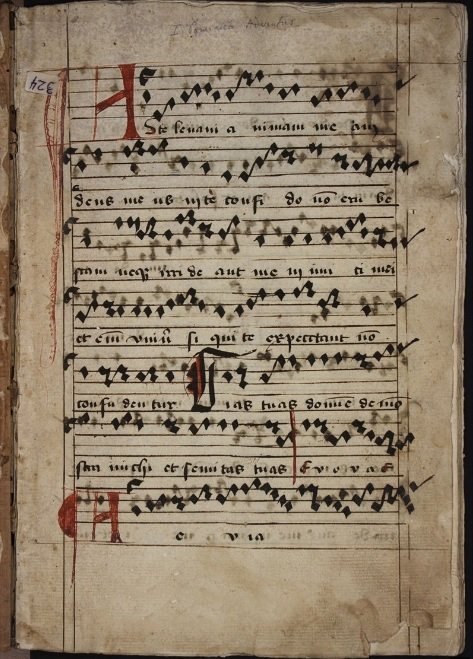 I Dominica Adventus
324
A
d te levavi a nimam me am
deus me us in te confi do no eru be
scam neqz irri de ant me in imi ci mei
et em univi si qui te expectant no
confu den tur Vias tuas domine de mo
stra michi et semitas tuas E v o v a e
A e v i a